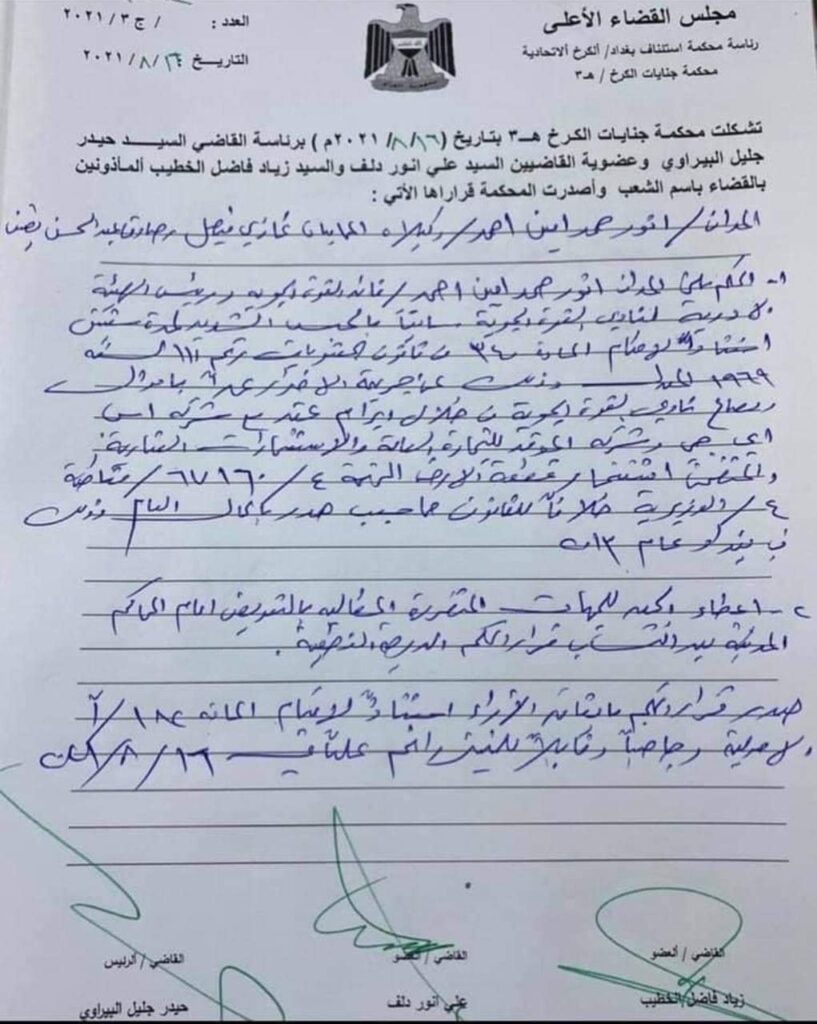 مجلس القضاء الأعلى
رئاسة محكمة استئناف بغداد/ الكرخ الاتحادية
محكمة جنايات الكرخ / هـ٣
العدد : / ج ٣/ ٢٠٢١
التاريخ ٢٤/ ٨/ ٢٠٢١
تشكلت محكمة جنايات الكرخ هـ٣ بتاريخ (١٦/ ٨/ ٢٠٢١م ) برئاسة القاضي السيد حيدر
جليل البيراوي وعضوية القاضيين السيد علي انور دلف والسيد زياد فاضل الخطيب المأذونين
بالقضاء باسم الشعب وأصدرت المحكمة قرارها الأتي :
المدان / انور حمد امين احمد/ وكيلاه المحاميان غازي فيصل وصادق عبد الحسن
١- الحكم على المدان انور حمد امين احمد / قائد القوة الجوية ورئيس الهيئة
الادارية لنادي القوة الجوية سابقاً بالحبس الشديد لمدة سنتين
استناداً لاحكام المادة ٣٤٠ من قانون العقوبات رقم ١١١ لسنة
١٩٦٩ المعدل وذلك عن جريمة الاضرار عمداً باموال
ومصالح نادي القوة الجوية من خلال ابرام عقد مع شركة اس
اي جي وشركة الموقد للتجارة العامة والاستثمارات العقارية
والمتضمن استثمار قطعة الارض المرقمة ٤ / ٦٧١٦٠ / مقاطعة
٤ / الوزيرية خلافاً للقانون مما سبب هدر بالمال العام وذلك
في عام ٢٠١٣
٢- اعطاء الحق للجهات المتضررة المطالبة بالتعويض امام المحاكم
المدنية بعد اكتساب قرار الحكم الدرجة القطعية .
صدر قرار الحكم باتفاق الآراء استناداً لاحكام المادة ١٨٢/ أ
الاصولية وجاهياً وقابلاً للتمييز وافهم علناً في ١٦/ ٨/ ٢٠٢١
القاضي / العضو
زياد فاضل الخطيب
القاضي / العضو
علي انور دلف
القاضي / الرئيس
حيدر جليل البيراوي